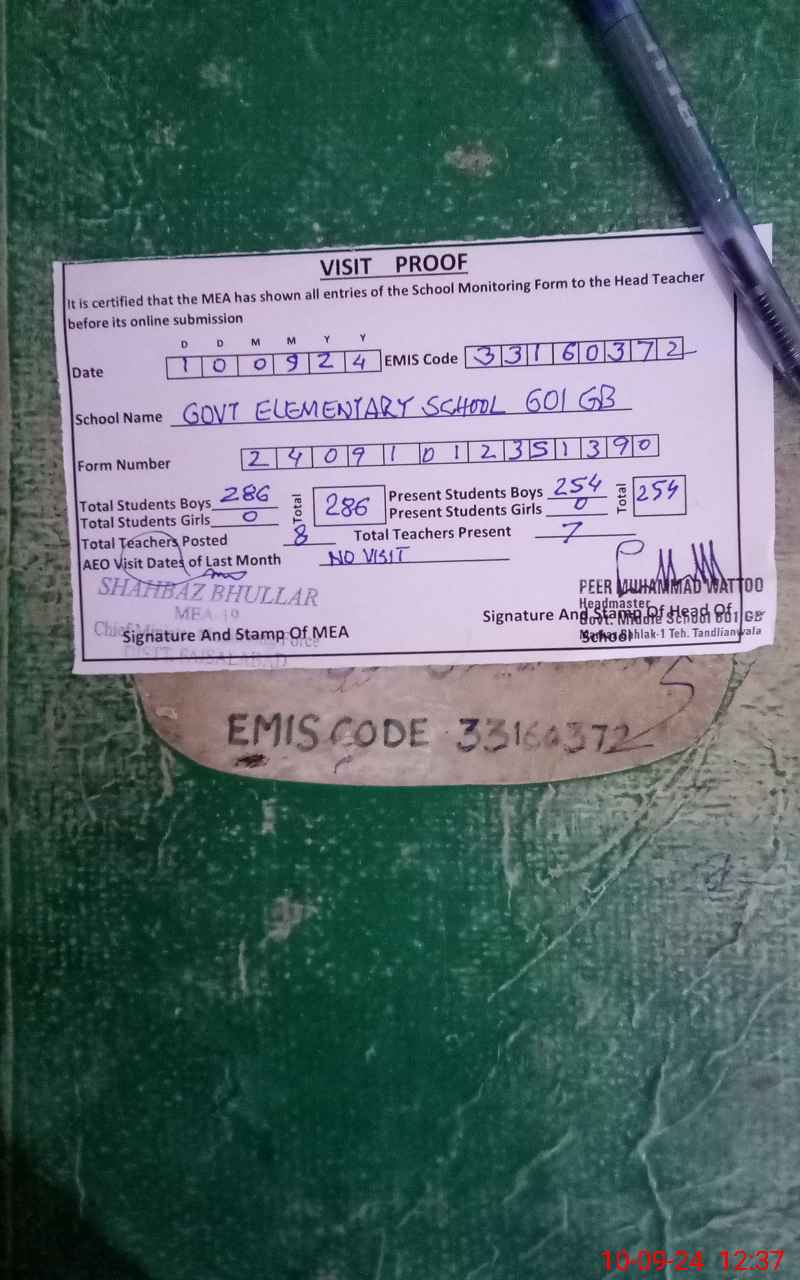 VISIT PROOF
It is certified that the MEA has shown all entries of the School Monitoring Form to the Head Teacher
before its online submission
D D M M Y Y
Date 1 0 0 9 2 4 EMIS Code 3 3 1 6 0 3 7 2
School Name GOVT ELEMENTARY SCHOOL 601 GB
Form Number 2 4 0 9 1 0 1 2 3 5 1 3 9 0
Total Students Boys 286 Total 286 Present Students Boys 254 Total 254
Total Students Girls 0 Present Students Girls 0
Total Teachers Posted 8 Total Teachers Present 7
AEO Visit Dates of Last Month NO VISIT
SHAHBAZ BHULLAR
MEA-19
Signature And Stamp Of MEA
DISTT. FAISALABAD
PEER MUHAMMAD WATTOO
Headmaster
Signature And Stamp Of Head Of
Govt. Middle School 601 GB
School
Teh. Tandlianwala
EMIS CODE 33160372
10-09-24 12:37